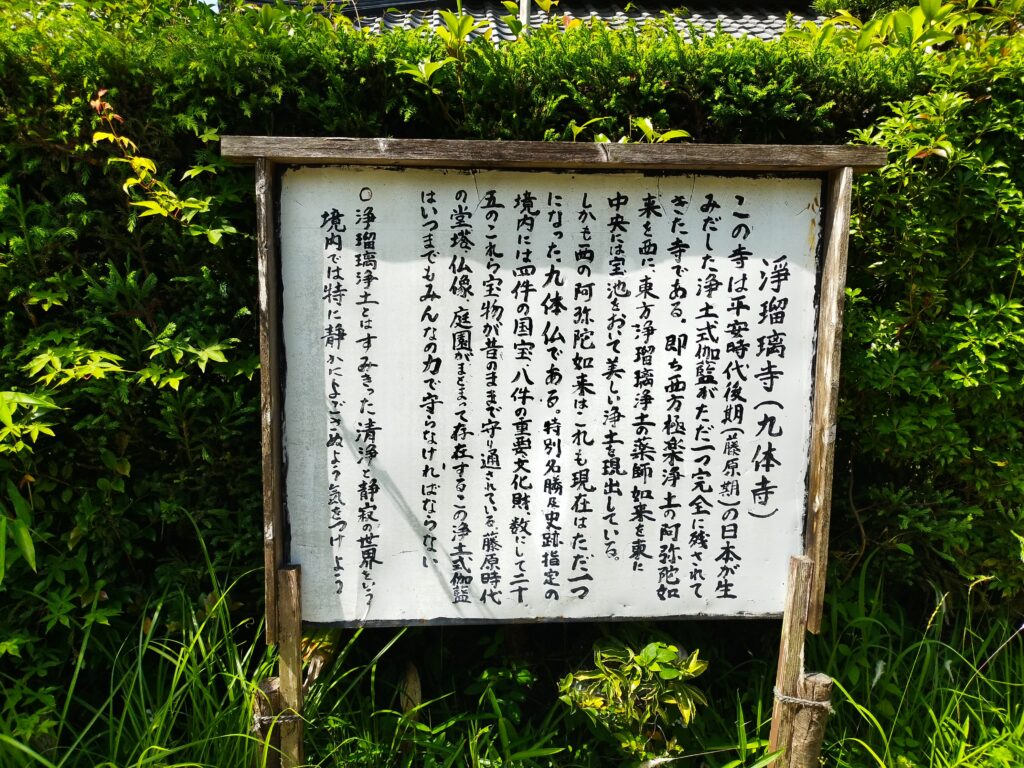 浄瑠璃寺(九体寺)
この寺は平安時代後期(藤原期)の日本が生
みだした浄土式伽藍がただ一つ完全に残されて
きた寺である。即ち西方極楽浄土の阿弥陀如
来を西に、東方浄瑠璃浄土の薬師如来を東に
中央には宝池をおいて美しい浄土を現出している。
しかも西の阿弥陀如来はこれも現在はただ一つ
になった、九体仏である。特別名勝及史跡指定の
境内には四件の国宝、八件の重要文化財、数にして二十
五のこれら宝物が昔のままで守り通されている。藤原時代
の堂塔、仏像、庭園がまとまって存在するこの浄土式伽藍
はいつまでもみんなの力で守らなければならない
○浄瑠璃浄土とはすみきった清浄と静寂の世界という
境内では特に静かによごさぬよう気をつけよう